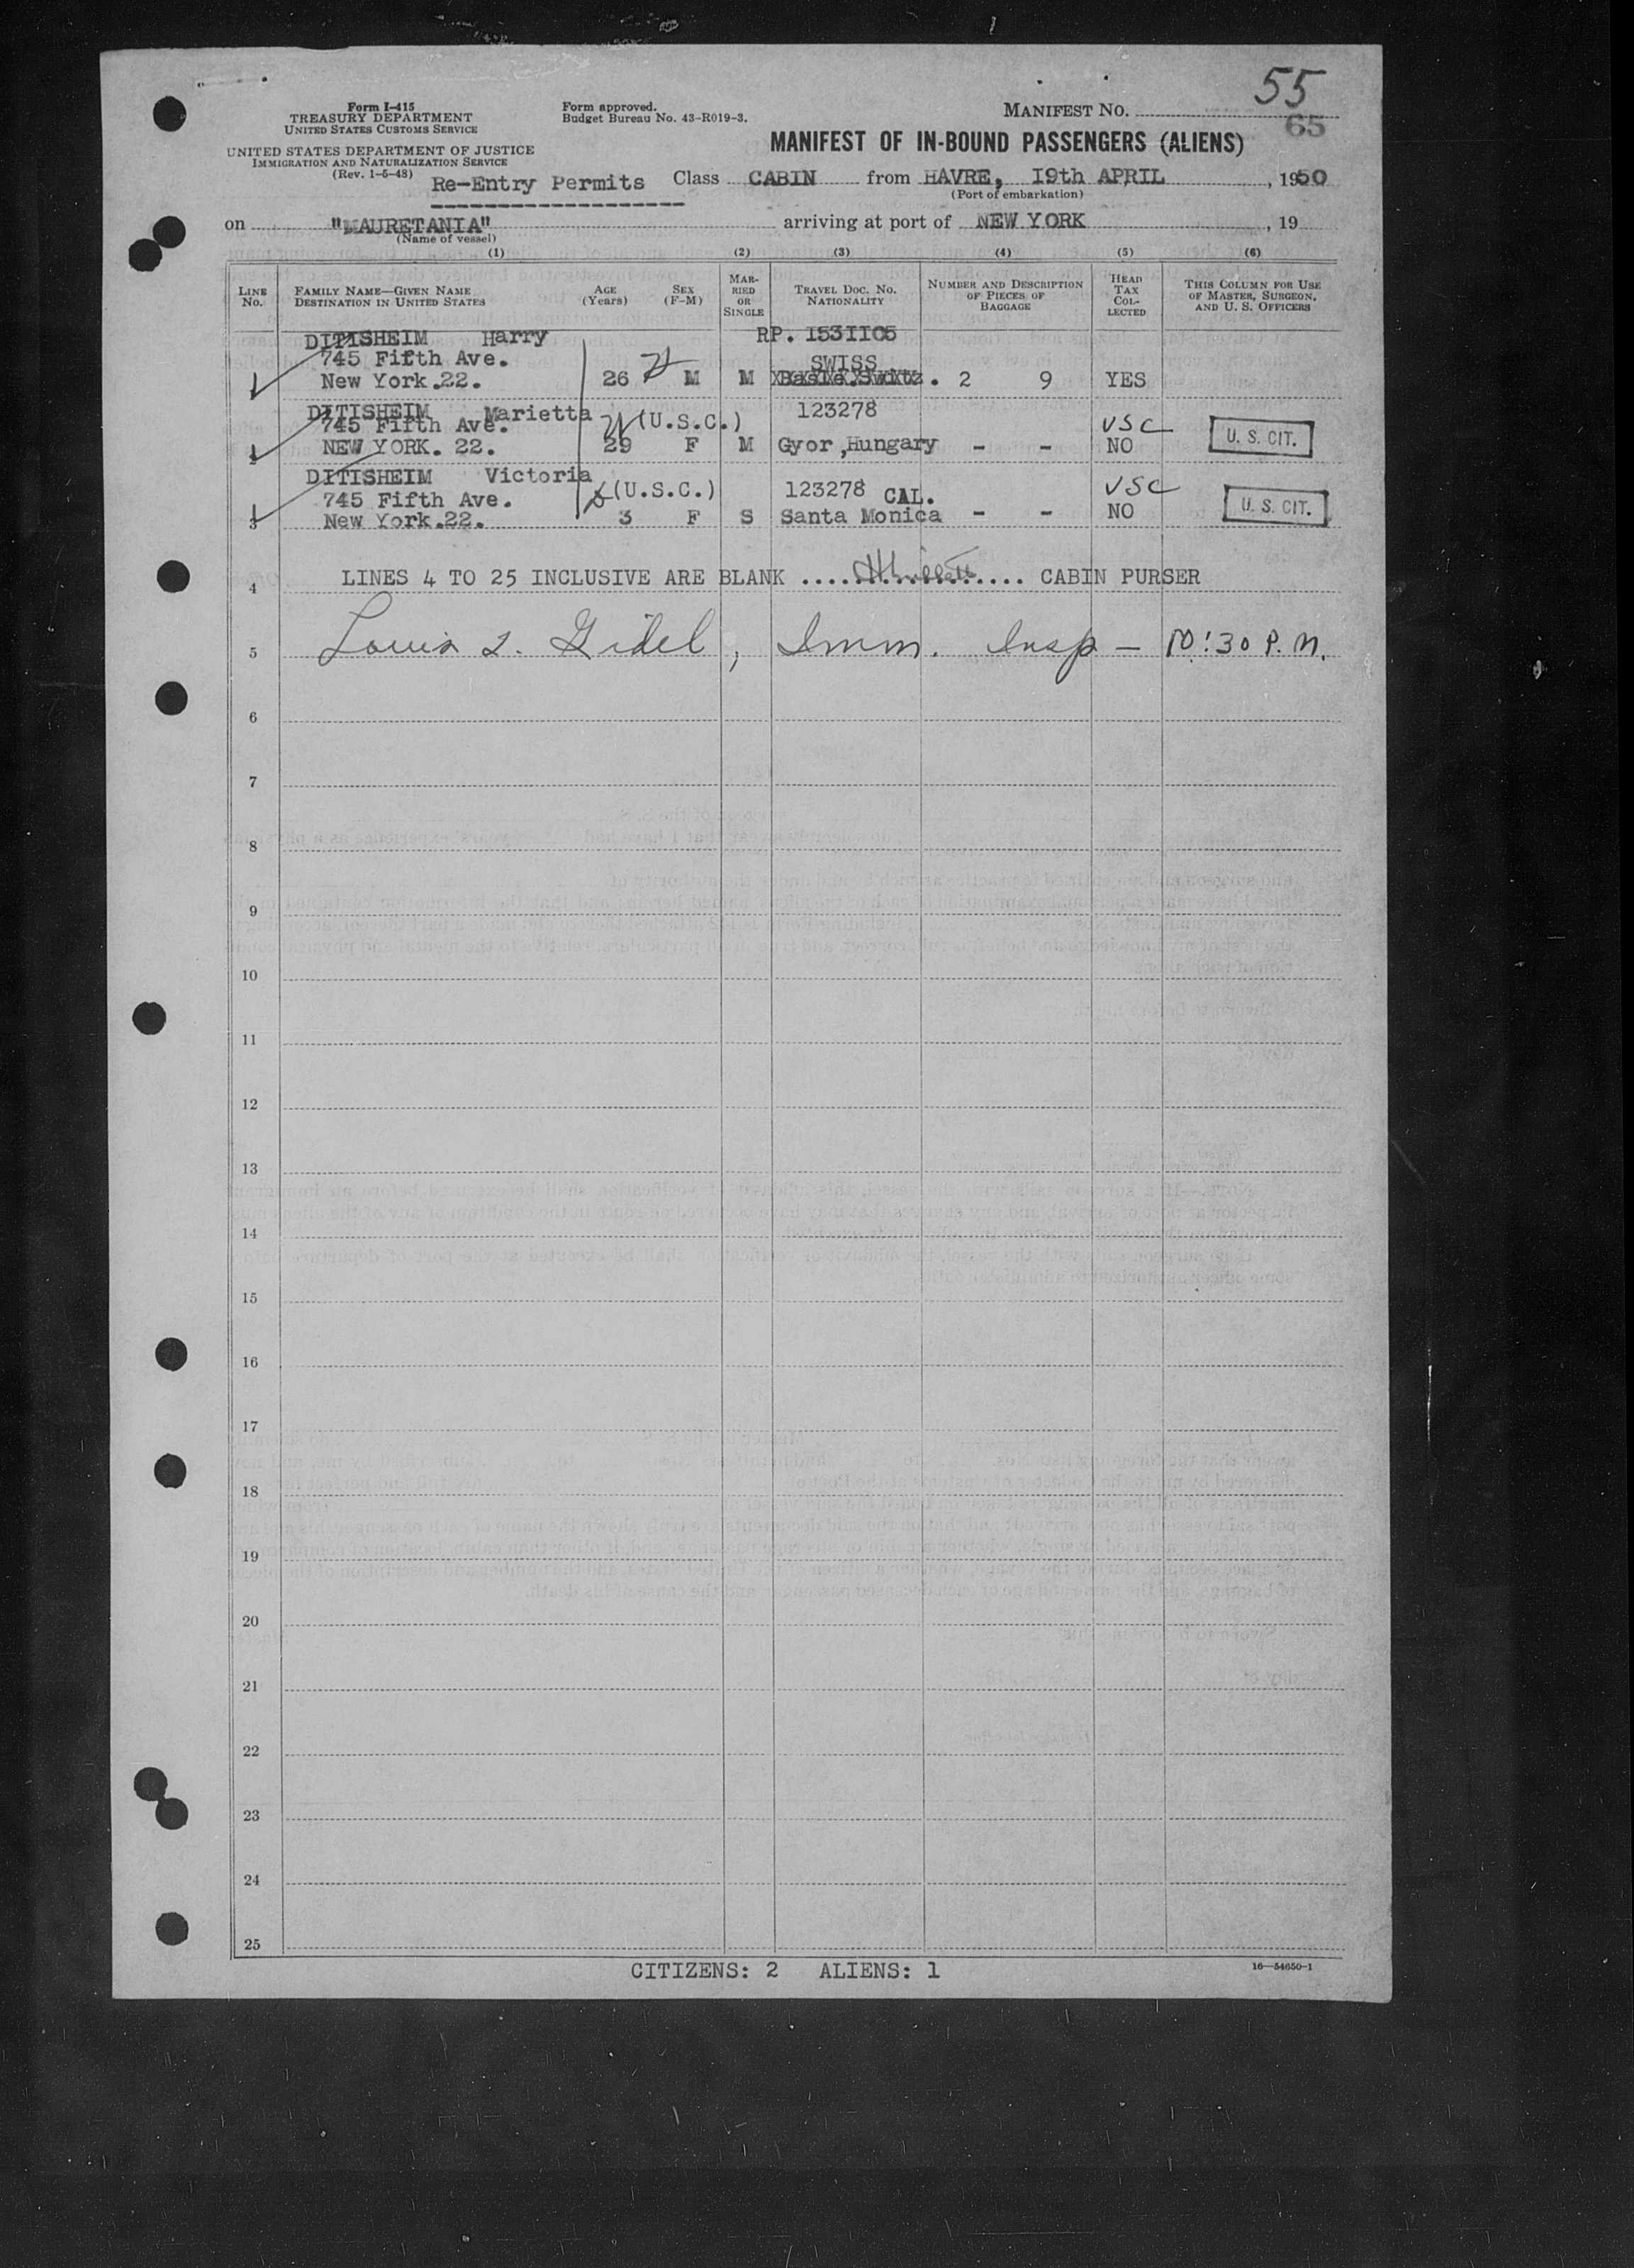 55
Form I-415
TREASURY DEPARTMENT
UNITED STATES CUSTOMS SERVICE
Form approved.
Budget Bureau No. 43-R019-3.
MANIFEST No.
65
UNITED STATES DEPARTMENT OF JUSTICE
IMMIGRATION AND NATURALIZATION SERVICE
(Rev. 1-5-48)
MANIFEST OF IN-BOUND PASSENGERS (ALIENS)
Re-Entry Permits Class CABIN from HAVRE, I9th APRIL, 1950
(Port of embarkation)
on "MAURETANIA" arriving at port of NEW YORK, 19
(Name of vessel)
(1) (2) (3) (4) (5) (6)
LINE No. FAMILY NAME—GIVEN NAME DESTINATION IN UNITED STATES AGE (Years) SEX (F-M) MARRIED OR SINGLE TRAVEL DOC. No. NATIONALITY NUMBER AND DESCRIPTION OF PIECES OF BAGGAGE HEAD TAX COLLECTED THIS COLUMN FOR USE OF MASTER, SURGEON, AND U. S. OFFICERS
DITISHEIM Harry RP. I53II05
745 Fifth Ave. SWISS
1 New York.22. 26 M M Basle.Switz. 2 9 YES
DITISHEIM Marietta 123278
745 Fifth Ave. (U.S.C.) USC U. S. CIT.
2 NEW YORK. 22. 29 F M Gyor,Hungary - - NO
DITISHEIM Victoria
745 Fifth Ave. (U.S.C.) 123278 CAL. USC U. S. CIT.
3 New York.22. 3 F S Santa Monica - - NO
4 LINES 4 TO 25 INCLUSIVE ARE BLANK .................... CABIN PURSER
5 Louis L. Gidel, Imm. Insp — 10:30 P.M.
6
7
8
9
10
11
12
13
14
15
16
17
18
19
20
21
22
23
24
25
CITIZENS: 2 ALIENS: 1
16—54650-1